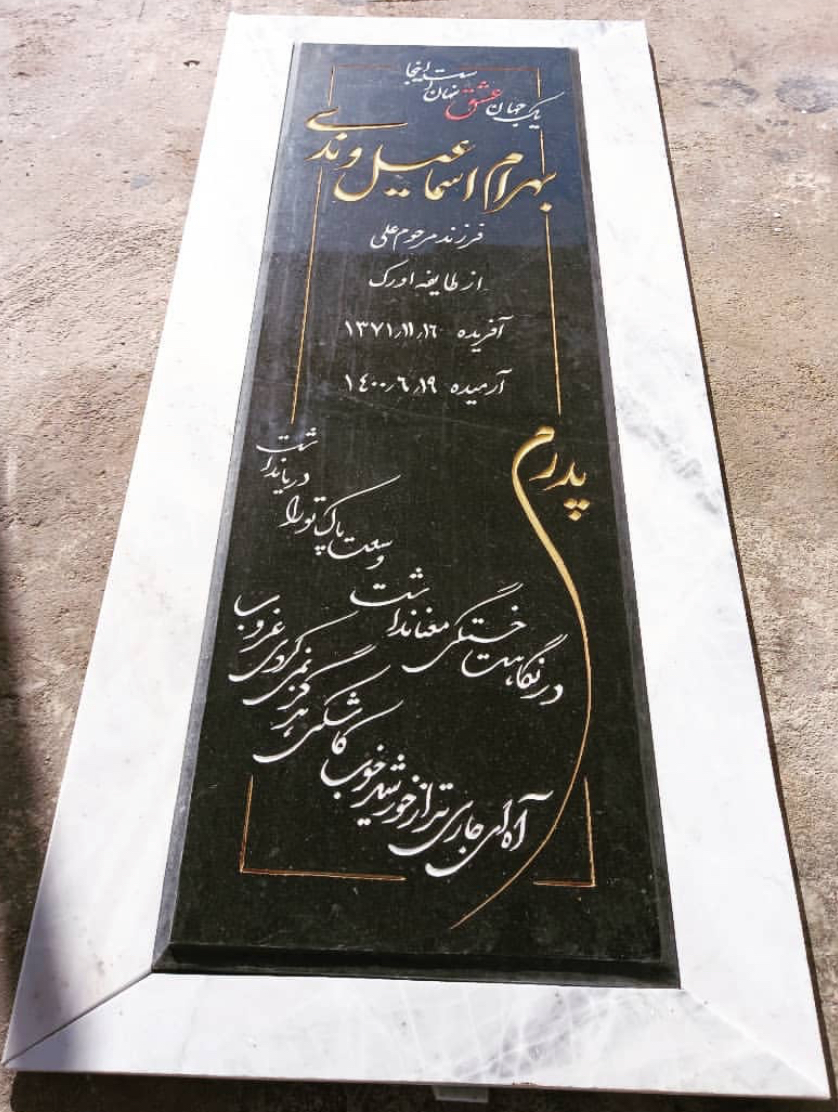 یک جهان عشق نهان است اینجا
بهرام اسماعیل وندی
فرزند مرحوم علی
از طایفه اورک
آفریده ۱۳۷۱٫۱۱٫۱۶
آرمیده ۱۴۰۰٫۶٫۱۹
پدرم
وسعت پاک تو را دریا نداشت
در نگاهت خستگی معنا نداشت
کاشکی هرگز نمی کردی غروب
آه ای جاری تر از خورشید خوب